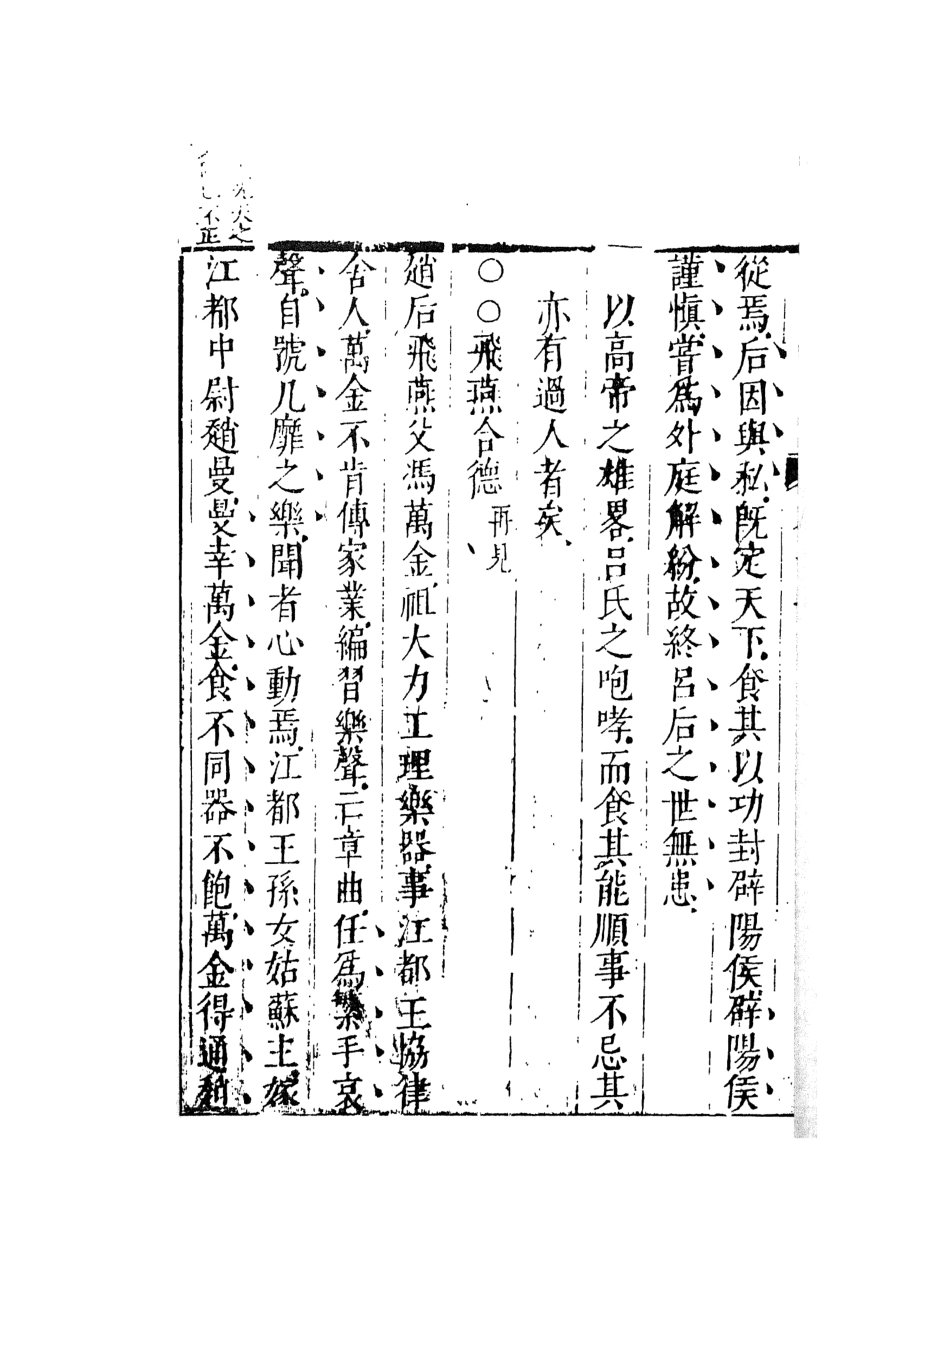 從焉后因與私既定天下食其以功封辟陽侯辟陽侯
謹慎嘗爲外庭解紛故終呂后之世無患
以高帝之雄畧呂氏之咆哮而食其能順事不忌其
亦有過人者矣
〇〇飛燕合德再見
趙后飛燕父馮萬金祖大力工理樂器事江都王協律
舍人萬金不肯傳家業編習樂聲亡章曲任爲繁手哀
聲自號凡靡之樂聞者心動焉江都王孫女姑蘇主嫁
江都中尉趙曼曼幸萬金食不同器不飽萬金得通趙